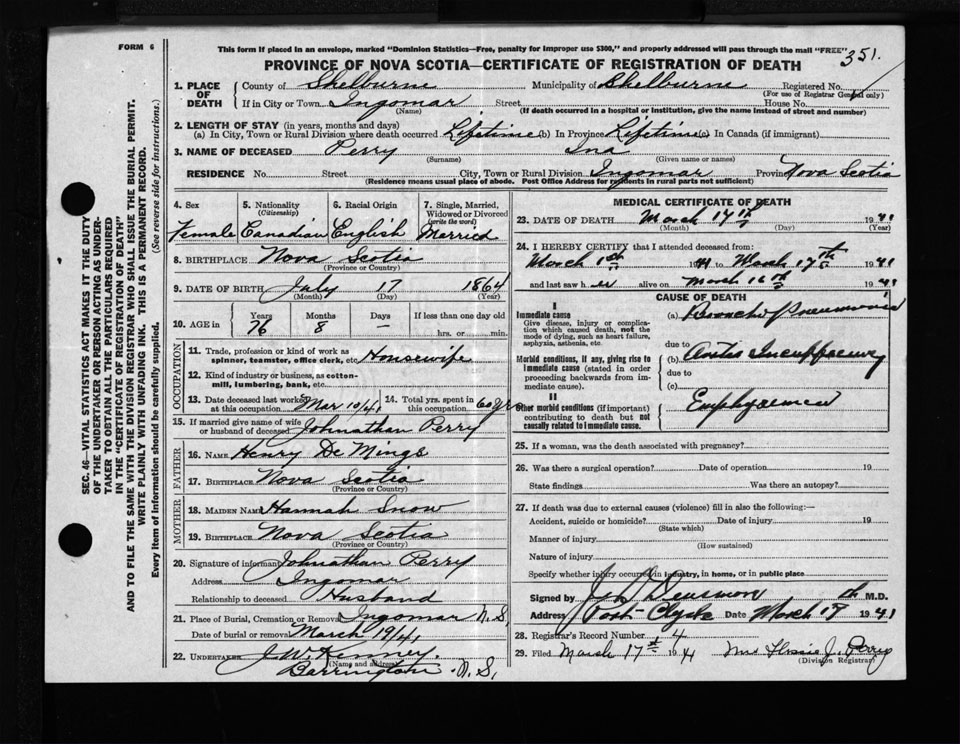 FORM 6
This form if placed in an envelope, marked "Dominion Statistics—Free, penalty for improper use $300," and properly addressed will pass through the mail "FREE"
351.
PROVINCE OF NOVA SCOTIA—CERTIFICATE OF REGISTRATION OF DEATH
1. PLACE OF DEATH
County of Shelburne Municipality of Shelburne Registered No.
(For use of Registrar General only)
If in City or Town Ingomar Street House No.
(Name) (If death occurred in a hospital or institution, give the name instead of street and number)
2. LENGTH OF STAY (in years, months and days)
(a) In City, Town or Rural Division where death occurred Lifetime (b) In Province Lifetime (c) In Canada (if immigrant)
3. NAME OF DECEASED Perry Ina
(Surname) (Given name or names)
RESIDENCE No. Street City, Town or Rural Division Ingomar Province Nova Scotia
(Residence means usual place of abode. Post Office Address for residents in rural parts not sufficient)
SEC. 46—VITAL STATISTICS ACT MAKES IT THE DUTY
OF THE UNDERTAKER OR PERSON ACTING AS UNDER-
TAKER TO OBTAIN ALL THE PARTICULARS REQUIRED
IN THE "CERTIFICATE OF REGISTRATION OF DEATH"
AND TO FILE THE SAME WITH THE DIVISION REGISTRAR WHO SHALL ISSUE THE BURIAL PERMIT.
WRITE PLAINLY WITH UNFADING INK. THIS IS A PERMANENT RECORD.
Every item of Information should be carefully supplied. (See reverse side for instructions.)
4. Sex 5. Nationality (Citizenship) 6. Racial Origin 7. Single, Married, Widowed or Divorced (write the word)
Female Canadian English Married
8. BIRTHPLACE Nova Scotia
(Province or Country)
9. DATE OF BIRTH July 17 1864
(Month) (Day) (Year)
10. AGE in Years Months Days If less than one day old
76 8 — hrs. or min.
OCCUPATION
11. Trade, profession or kind of work as spinner, teamster, office clerk, etc. Housewife
12. Kind of industry or business, as cotton-mill, lumbering, bank, etc.
13. Date deceased last worked at this occupation Mar 10/41 14. Total yrs. spent in this occupation 60 yrs
15. If married give name of wife or husband of deceased Johnathan Perry
FATHER
16. NAME Henry De Mings
17. BIRTHPLACE Nova Scotia
(Province or Country)
MOTHER
18. MAIDEN NAME Hannah Snow
19. BIRTHPLACE Nova Scotia
(Province or Country)
20. Signature of informant Johnathan Perry
Address Ingomar
Relationship to deceased Husband
21. Place of Burial, Cremation or Removal Ingomar N.S.
Date of burial or removal March 19/41
22. UNDERTAKER J. W. Kenney.
(Name and address)
Barrington N.S.
MEDICAL CERTIFICATE OF DEATH
23. DATE OF DEATH March 17th 1941
(Month) (Day) (Year)
24. I HEREBY CERTIFY that I attended deceased from:
March 1st 1941 to March 17th 1941
and last saw her alive on March 16th 1941
CAUSE OF DEATH
I
Immediate cause
Give disease, injury or complication which caused death, not the mode of dying, such as heart failure, asphyxia, asthenia, etc.
(a) Broncho Pneumonia
due to
Morbid conditions, if any, giving rise to Immediate cause (stated in order proceeding backwards from immediate cause).
(b)
due to
(c)
II
Other morbid conditions (if important) contributing to death but not causally related to immediate cause.
Emphysema
25. If a woman, was the death associated with pregnancy?
26. Was there a surgical operation? Date of operation 19
State findings Was there an autopsy?
27. If death was due to external causes (violence) fill in also the following:—
Accident, suicide or homicide? Date of injury 19
(State which)
Manner of injury
(How sustained)
Nature of injury
Specify whether injury occurred in industry, in home, or in public place
Signed by M.D.
Address Port Clyde Date March 17 1941
28. Registrar's Record Number 4
29. Filed March 17st 194 Mrs Flossie J. Perry
(Division Registrar)